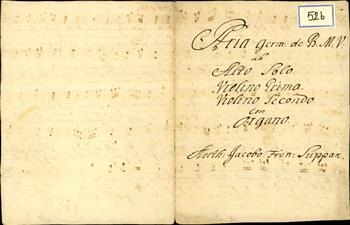 526
Aria Germ: de B.M.V.
ab
Alto Solo
Violino Primo.
Violino Secondo.
Con
Organo.
Auth: Jacobo Fran: Suppan.